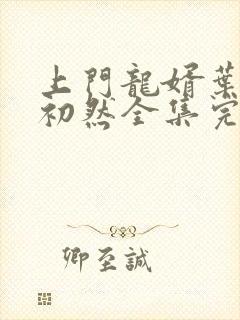 上門龍婿葉
初然全集完
卿至誠